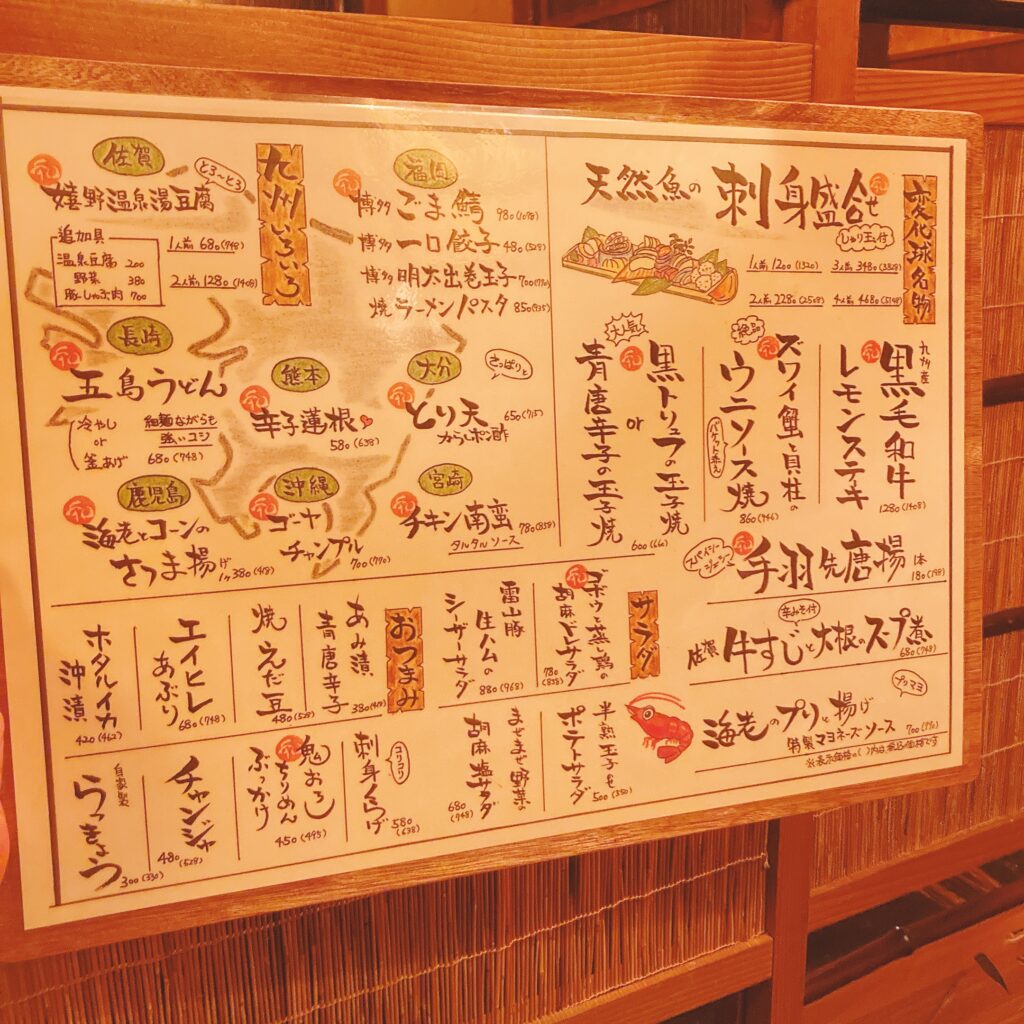 九州いろいろ
佐賀
とろ〜とろ
嬉野温泉湯豆腐
追加具
温泉豆腐 200
野菜 380
豚しゃぶ肉 700
1人前 680(748)
2人前 1280(1408)
福岡
博多 ごま鯖 980(1078)
博多 一口餃子 480(528)
博多 明太出巻玉子 700(770)
焼ラーメンパスタ 850(935)
長崎
五島うどん
冷やし
or
釜あげ
細麺ながらも
強いコシ
680(748)
熊本
辛子蓮根
580(638)
大分
さっぱりと
とり天 650(715)
からしポン酢
鹿児島
海老とコーンの
さつま揚げ
1ヶ380(418)
沖縄
ゴーヤ
チャンプル
700(770)
宮崎
チキン南蛮 780(858)
タルタルソース
変化球名物
天然魚の刺身盛合せ
しゃり玉付
1人前 1200(1320)
3人前 3480(3828)
2人前 2280(2508)
4人前 4680(5148)
九州産
黒毛和牛
レモンステーキ
1280(1408)
絶品
ズワイ蟹と貝柱の
ウニソース焼
バケット添え
860(946)
大人気
黒トリュフの玉子焼
or
青唐辛子の玉子焼
600(660)
スパイシー
手羽先唐揚 1本
180(198)
辛みそ付
佐賀 牛すじと大根のスープ煮
680(748)
プリマヨ
海老のプリっと揚げ
特製マヨネーズソース 700(770)
※表示価格の( )内は税込価格です
サラダ
ゴボウと蒸し鶏の
胡麻ドレサラダ
780(858)
雷山豚
生ハムの
シーザーサラダ
880(968)
半熟玉子も
ポテトサラダ
500(550)
まぜまぜ野菜の
胡麻塩サラダ
680(748)
おつまみ
あみ漬
青唐辛子
380(418)
焼えだ豆
480(528)
エイヒレ
あぶり
680(748)
ホタルイカ
沖漬
420(462)
コリコリ
刺身くらげ
580(638)
鬼おろし
ちりめん
ぶっかけ
450(495)
チャンジャ
480(528)
自家製
らっきょう
300(330)